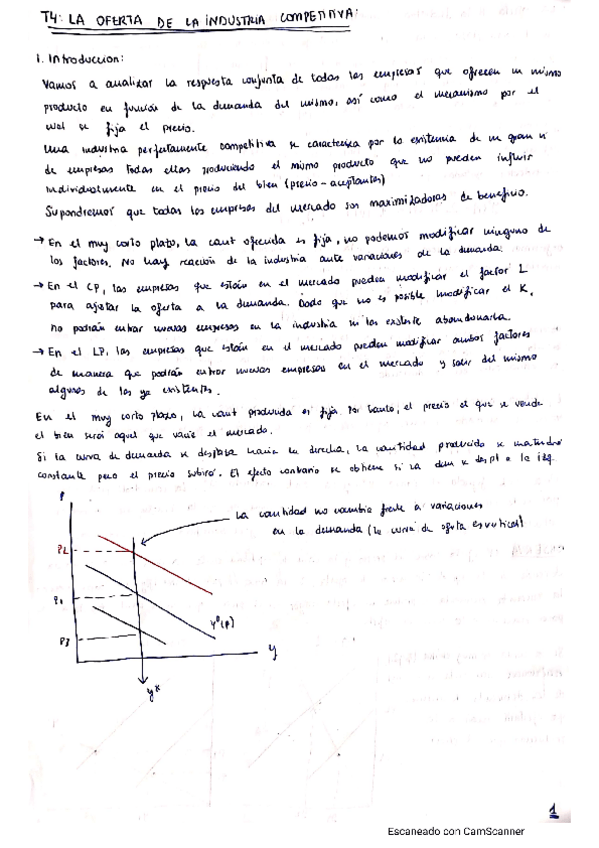 T4: LA OFERTA DE LA INDUSTRIA COMPETITIVA:
1. Introduccion:
Vamos a analizar la respuesta conjunta de todas las empresas que ofrecen un mismo
producto en función de la demanda del mismo, así como el mecanismo por el
cual se fija el precio.
Una industria perfectamente competitiva se caracteriza por la existencia de un gran nº
de empresas todas ellas produciendo el mismo producto que no pueden influir
individualmente en el precio del bien (precio-aceptantes)
Supondremos que todas las empresas del mercado son maximizadoras de beneficio.
→ En el muy corto plazo, la cant ofrecida es fija, no podemos modificar ninguno de
los factores. No hay reacción de la industria ante variaciones de la demanda.
→ En el CP, las empresas que están en el mercado pueden modificar el factor L
para ajustar la oferta a la demanda. Dado que no es posible modificar el K,
no podrán entrar nuevas empresas en la industria ni las existente abandonarla.
→ En el LP, las empresas que están en el mercado pueden modificar ambos factores
de manera que podrán entrar nuevas empresas en el mercado y salir del mismo
algunas de las ya existentes.
En el muy corto plazo, la cant producida es fija. Por tanto, el precio al que se vende
el bien será aquel que vacíe el mercado.
Si la curva de demanda se desplaza hacia la derecha, la cantidad producida se mantendrá
constante pero el precio subirá. El efecto contrario se obtiene si la dem se despl a la izq.
P
La cantidad no cambia frente a variaciones
en la demanda (la curva de oferta es vertical)
P2
P1
P3
yᴰ(p)
y
y*
1
Escaneado con CamScanner